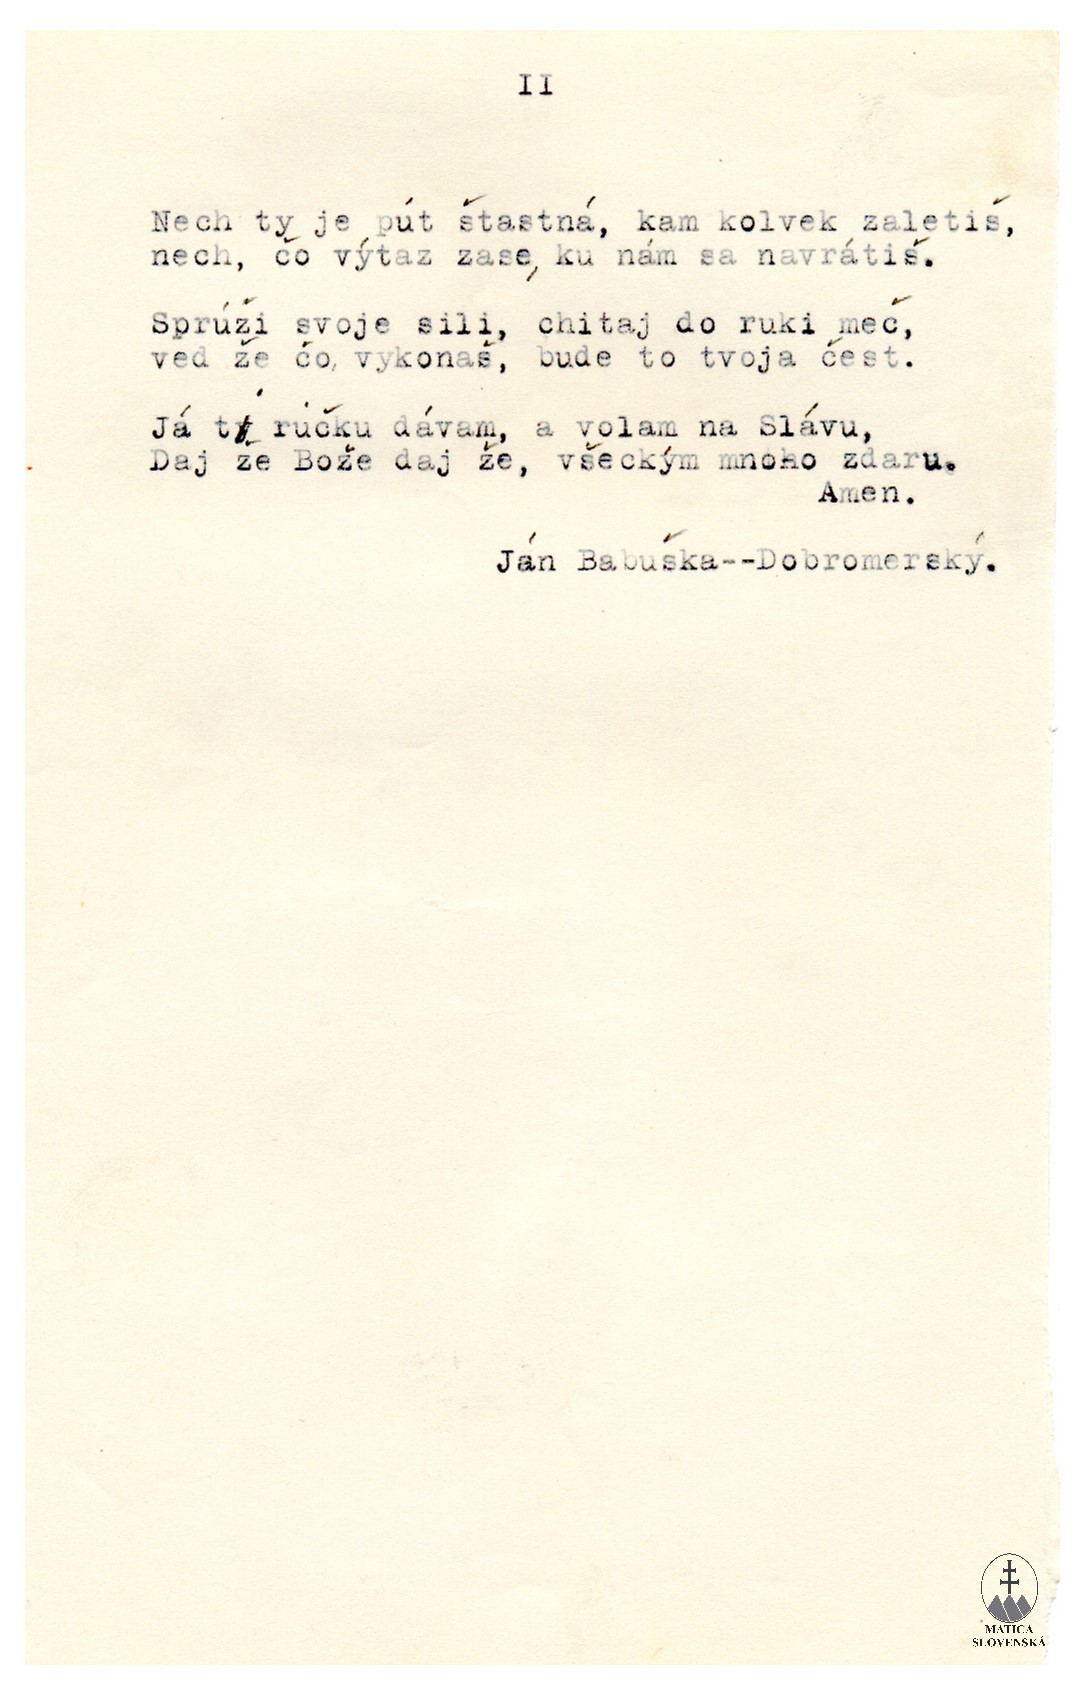 II
Nech ty je pút štastná, kam kolvek zaletiš,
nech, čo výtaz zase, ku nám sa navrátiš.
Sprúži svoje sili, chitaj do ruki meč,
ved že čo, vykonaš, bude to tvoja čest.
Já ti rúčku dávam, a volam na Slávu,
Daj že Bože daj že, všeckým mnoho zdaru.
Amen.
Ján Babuška--Dobromerský.
MATICA
SLOVENSKÁ